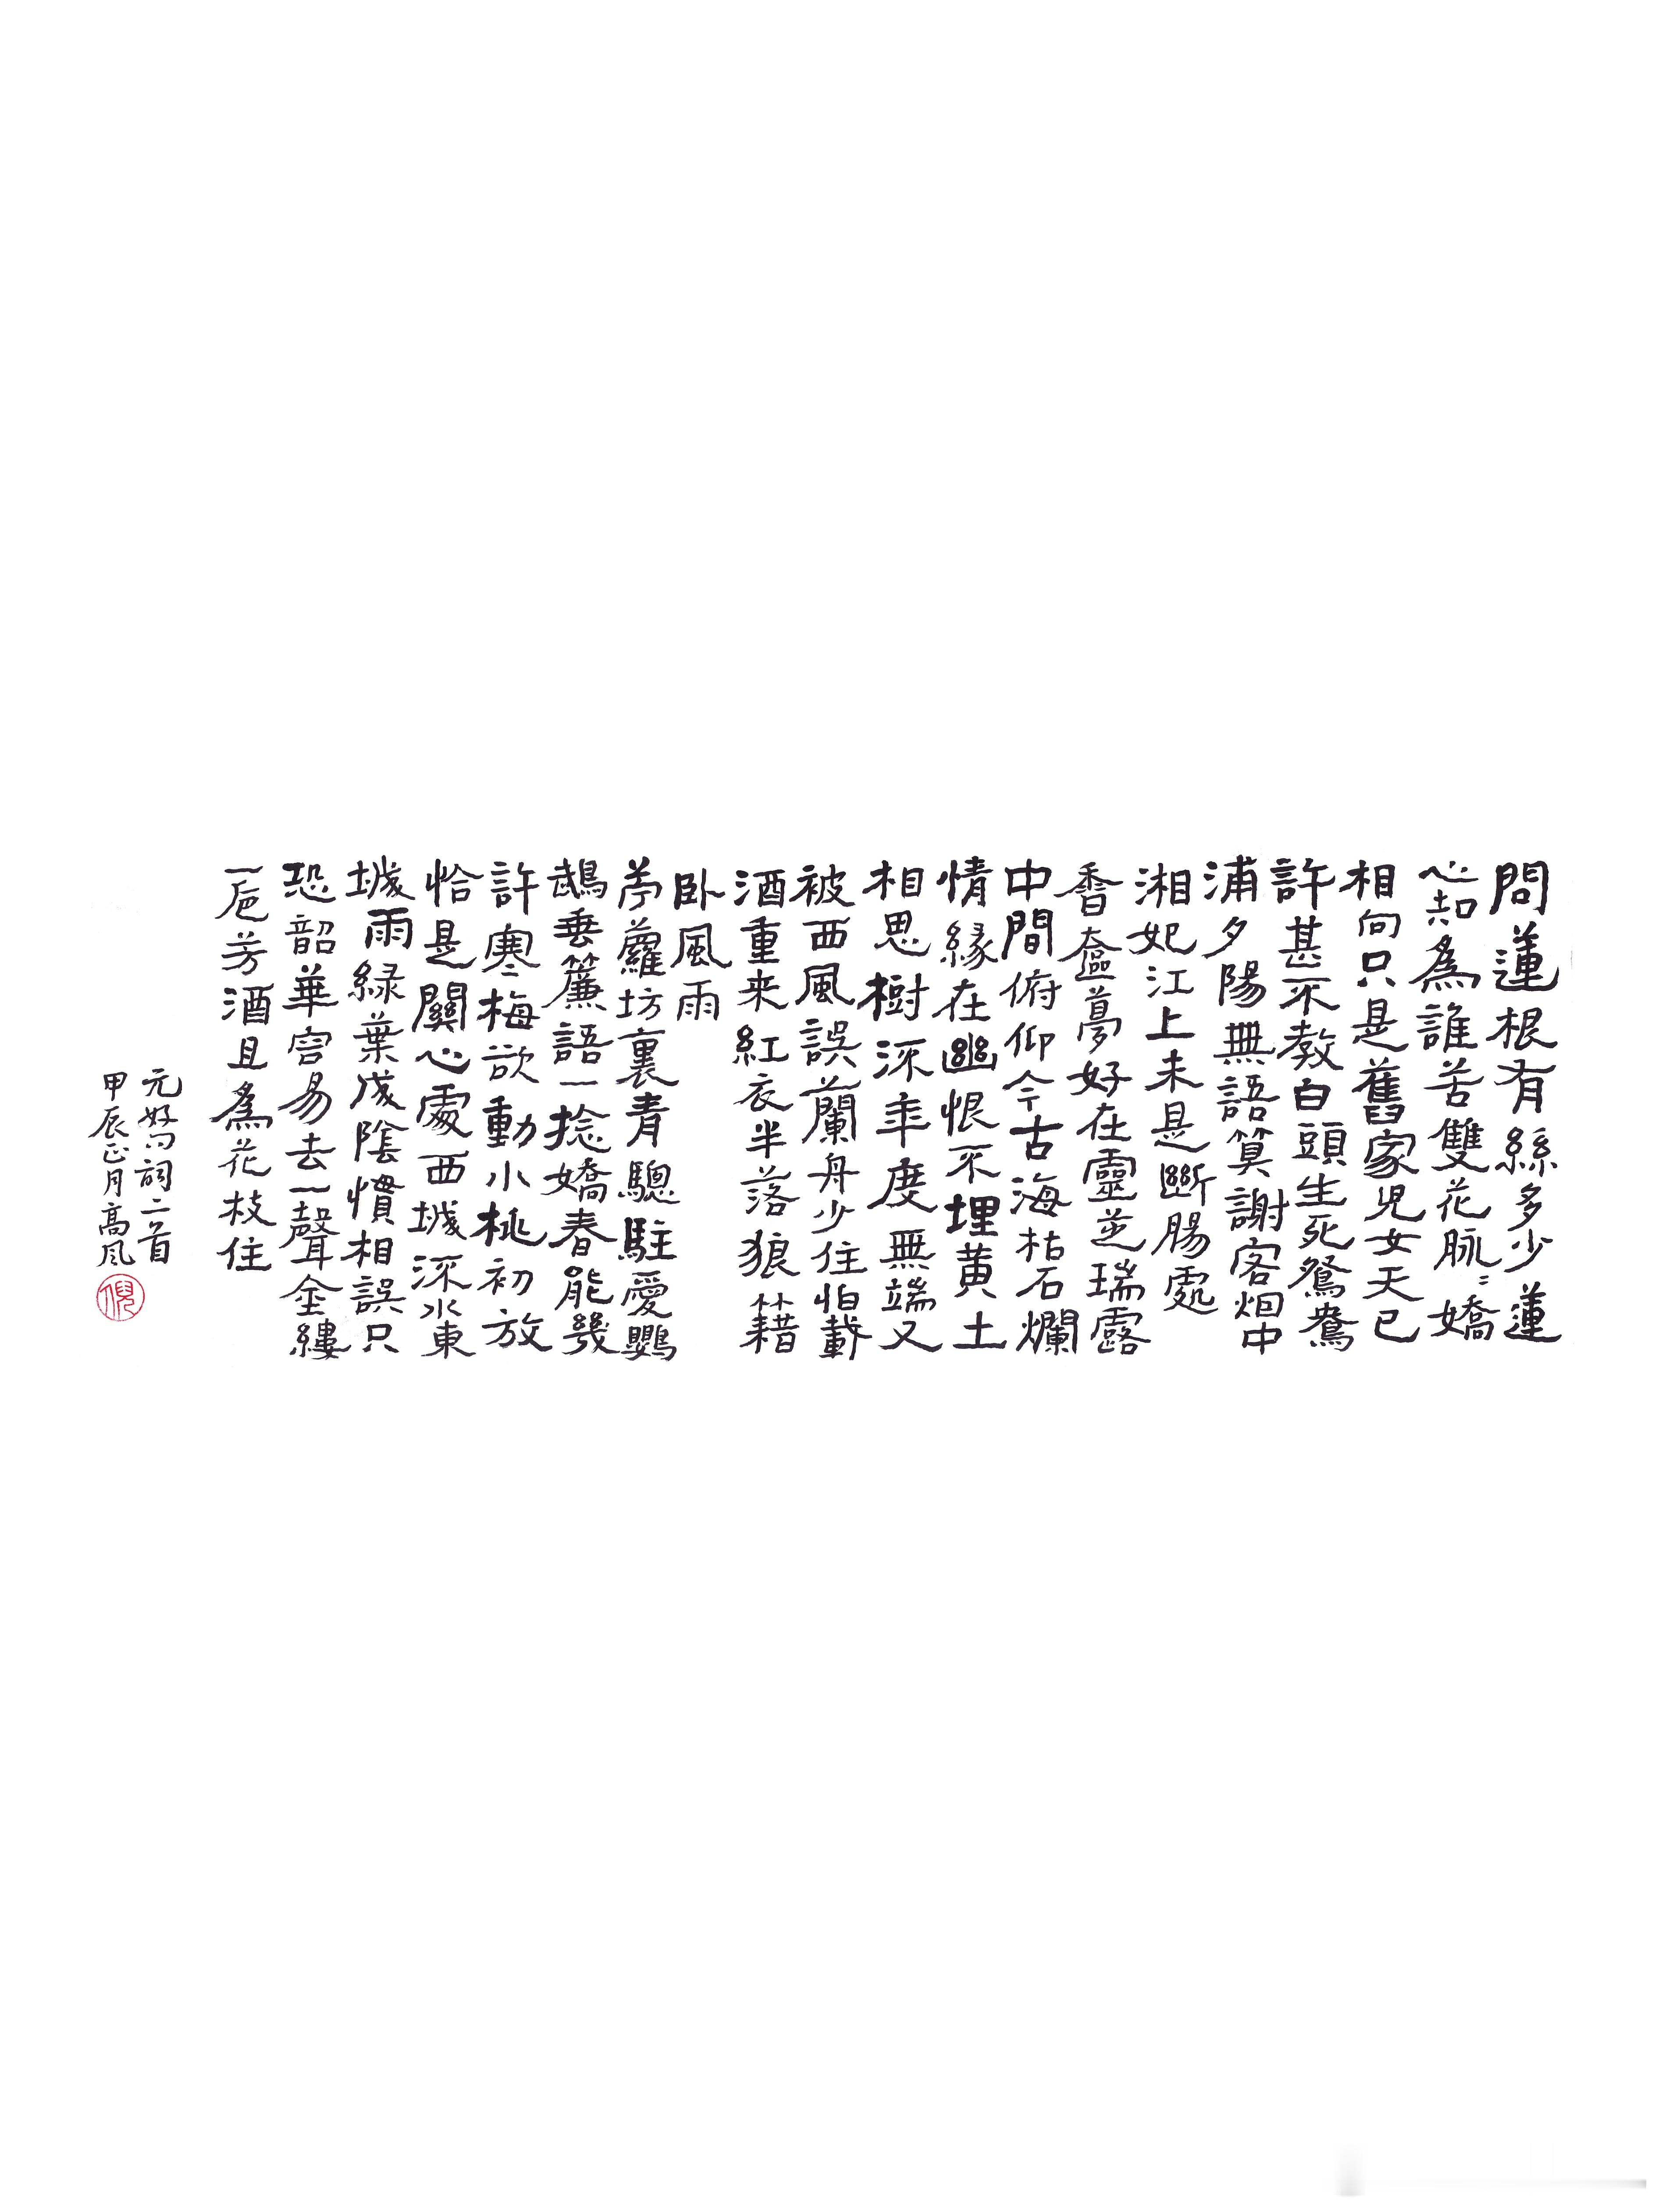 問蓮根有絲多少蓮
心知為誰苦雙花脈〻嬌
相向只是舊家兒女天已
許甚不教白頭生死鴛鴦
浦夕陽無語算謝客烟中
湘妃江上未是斷腸處
香奩夢好在靈芝瑞露
中間俯仰今古海枯石爛
情緣在幽恨不埋黃土
相思樹深年度無端又
被西風誤蘭舟少住怕載
酒重来紅衣半落狼籍
卧風雨
蘿坊裏青驄駐愛鸚
鵡垂簾語一捻嬌春能幾
許寒梅欲動小桃初放
恰是關心處西城深水東
城雨綠葉成陰慣相誤只
恐韶華容易去一聲金縷
一巵芳酒且為花枝住
元好问詞二首
甲辰正月高风
倪